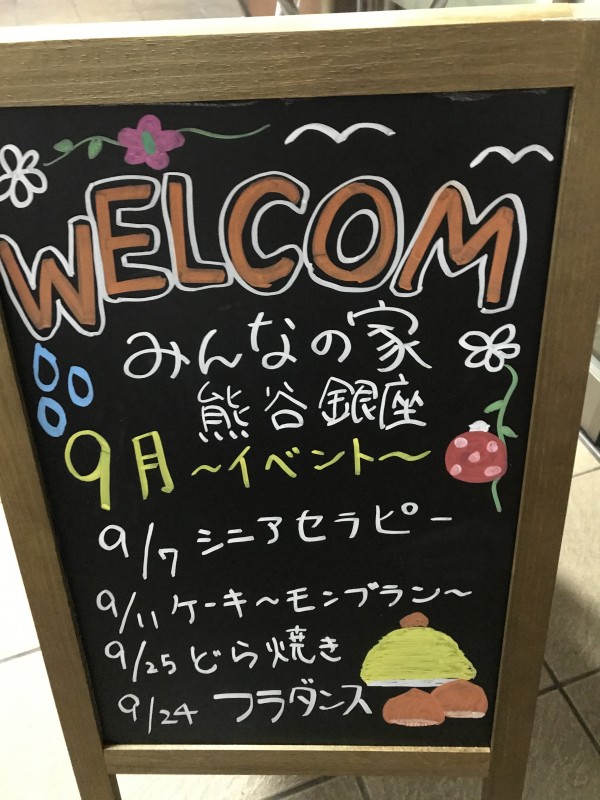 WELCOM
みんなの家
熊谷銀座
9月～イベント～
9/7 シニアセラピー
9/11 ケーキ～モンブラン～
9/25 どら焼き
9/24 フラダンス